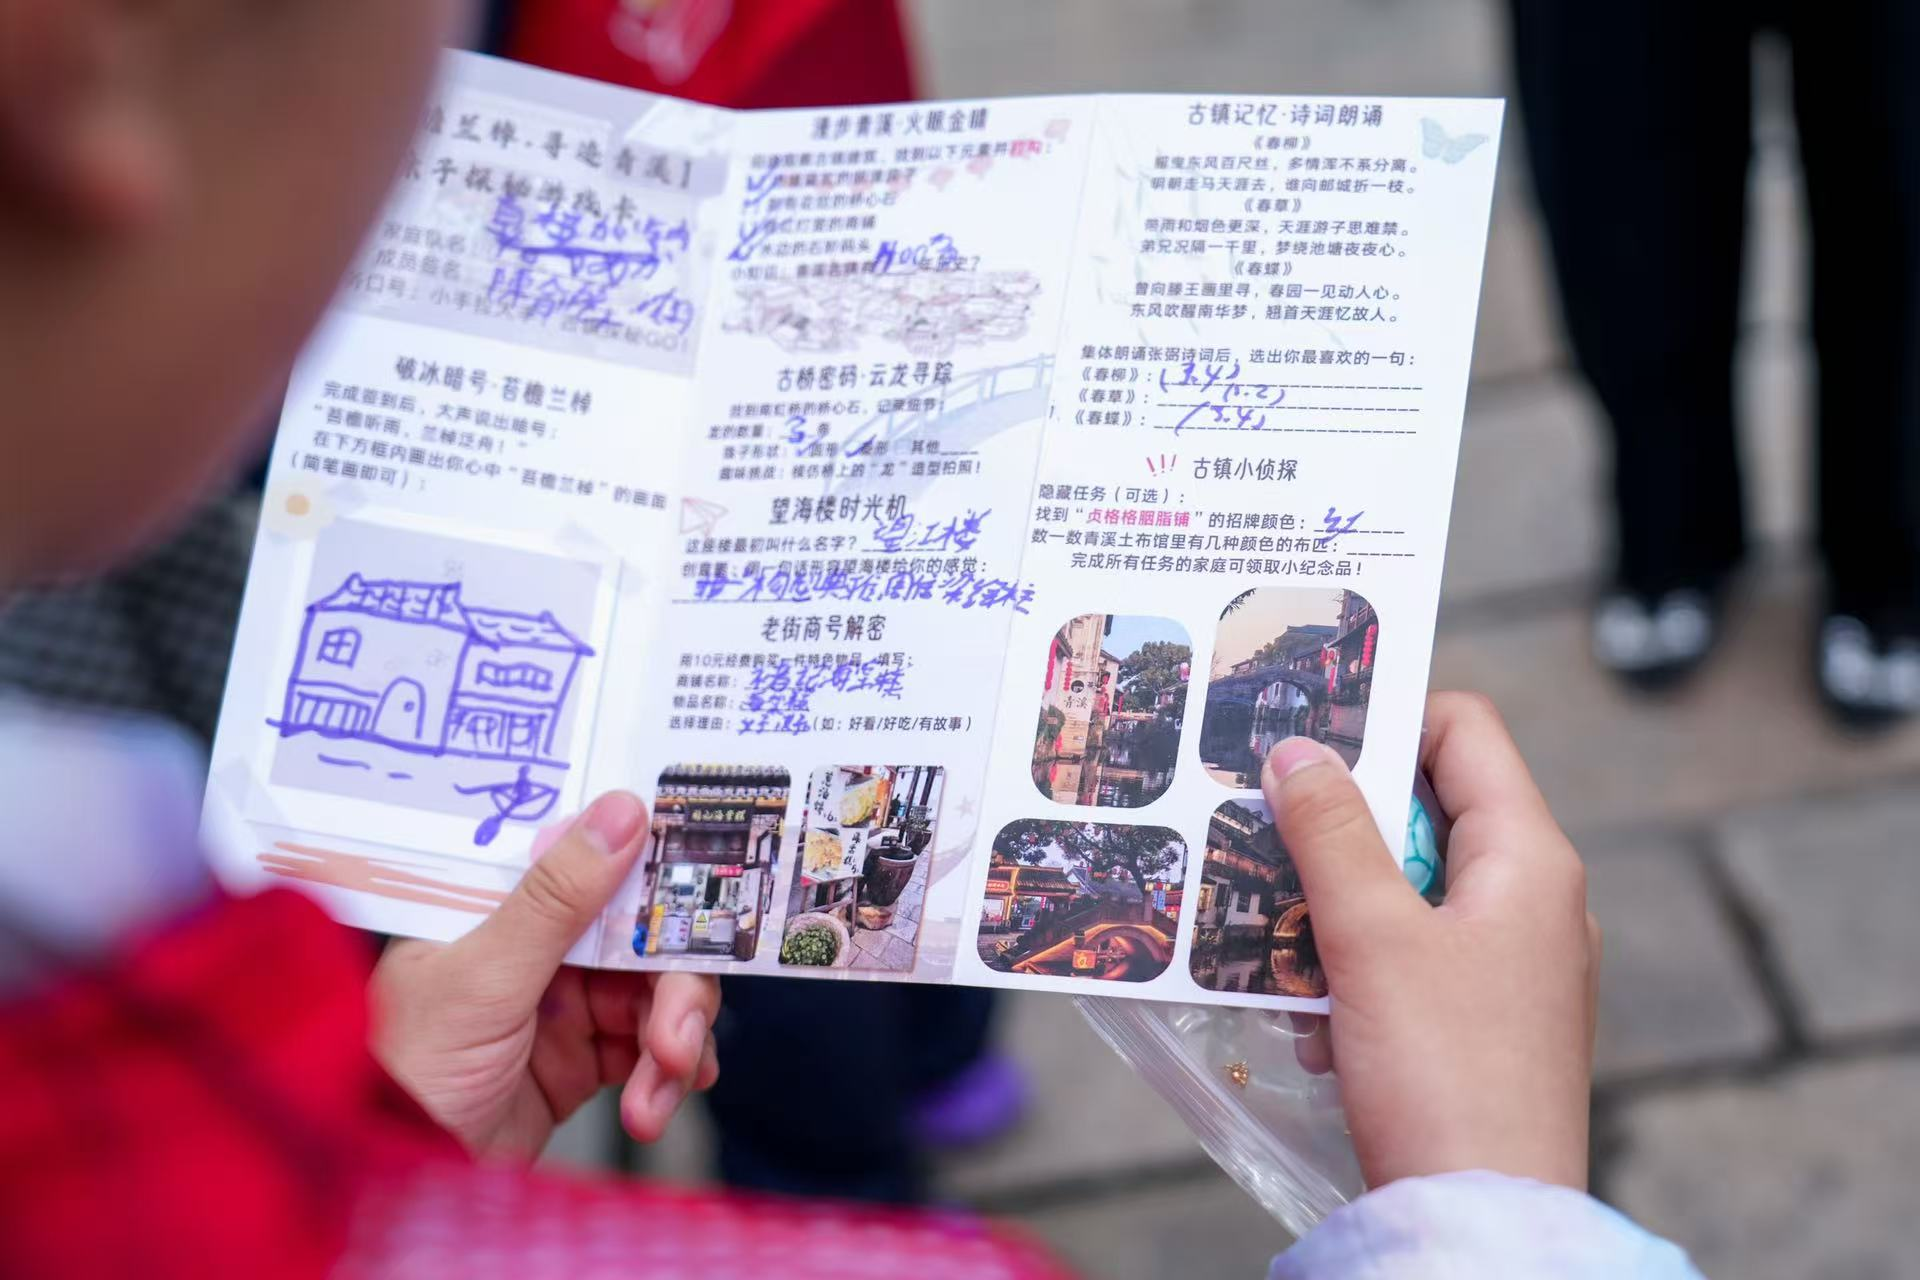 檐兰棹·寻迹青溪】
亲子探秘游戏卡
家庭队名：
成员签名：
口号：小手拉大手，古镇探秘GO！
破冰暗号·苔檐兰棹
完成签到后，大声说出暗号：
“苔檐听雨，兰棹泛舟！”
在下方框内画出你心中“苔檐兰棹”的画面
（简笔画即可）：
漫步青溪·火眼金睛
找到以下元素并打勾：
桥心石
灯笼的商铺
水边的石阶码头
小知识：青溪古镇有 年历史？
古桥密码·云龙寻踪
找到南虹桥的桥心石，记录细节：
龙的数量：3 条
珠子形状： 圆形 菱形 其他____
趣味挑战：模仿桥上的“龙”造型拍照！
望海楼时光机
这座楼最初叫什么名字？望江楼
创意题：用一句话形容望海楼给你的感觉：
老街商号解密
用10元经费购买一件特色物品，填写：
商铺名称：
物品名称：
选择理由： （如：好看/好吃/有故事）
古镇记忆·诗词朗诵
《春柳》
摇曳东风百尺丝，多情浑不系分离。
明朝走马天涯去，谁向邮城折一枝。
《春草》
带雨和烟色更深，天涯游子思难禁。
弟兄况隔一千里，梦绕池塘夜夜心。
《春蝶》
曾向滕王画里寻，春园一见动人心。
东风吹醒南华梦，翘首天涯忆故人。
集体朗诵张弼诗词后，选出你最喜欢的一句：
《春柳》：(3.4)
《春草》：(1.2)
《春蝶》：(3.4)
!!! 古镇小侦探
隐藏任务（可选）：
找到“贞格格胭脂铺”的招牌颜色：红
数一数青溪土布馆里有几种颜色的布匹：______
完成所有任务的家庭可领取小纪念品！
青溪